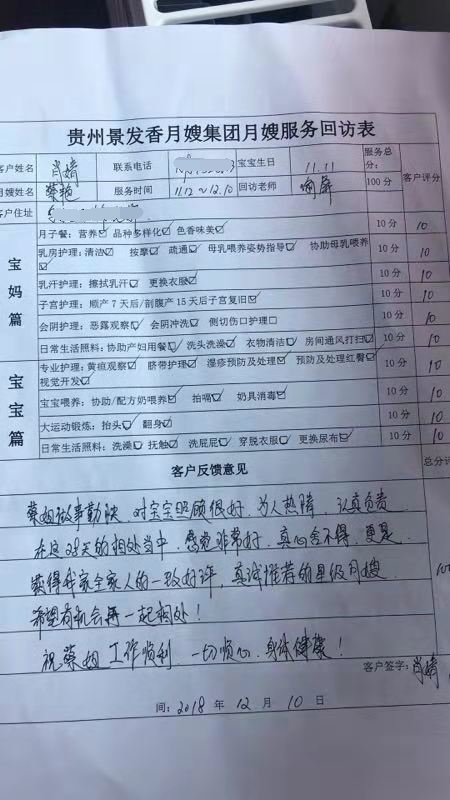 贵州景发香月嫂集团月嫂服务回访表
客户姓名 肖婧 联系电话 宝宝生日 11.11 服务总分: 客户评分
月嫂姓名 蔡艳 服务时间 11.12~12.10 回访老师 100分
客户住址
宝妈篇
月子餐:营养☑ 品种多样化☑ 色香味美☑ 10分 10
乳房护理:清洁☑ 按摩☑ 疏通☑ 母乳喂养姿势指导☑ 协助母乳喂养☑ 10分 10
乳汗护理:擦拭乳汗☑ 更换衣服☑ 10分 10
子宫护理:顺产7天后/剖腹产15天后子宫复旧☑ 10分 10
会阴护理:恶露观察☑ 会阴冲洗☑ 侧切伤口护理□ 10分 10
日常生活照料:协助产妇用餐☑ 洗头洗澡☑ 衣物清洁☑ 房间通风打扫☑ 10分 10
宝宝篇
专业护理:黄疸观察☑ 脐带护理☑ 湿疹预防及处理☑ 预防及处理红臀☑
视觉开发☑ 10分 10
宝宝喂养:协助/配方奶喂养☑ 拍嗝☑ 奶具消毒☑ 10分 10
大运动锻炼:抬头☑ 翻身☑ 10分 10
日常生活照料:洗澡☑ 抚触☑ 洗屁屁☑ 穿脱衣服☑ 更换尿布☑ 10分 10
客户反馈意见 总分评
蔡姐做事勤快、对宝宝照顾很好、为人热情、认真负责
在这28天的相处当中、感觉非常好、真心舍不得、更是
获得我家全家人的一致好评、真诚推荐的星级月嫂、 100
希望有机会再一起相处!
祝蔡姐工作顺利 一切顺心、身体健康!
客户签字:肖婧
间:2018 年 12 月 10 日